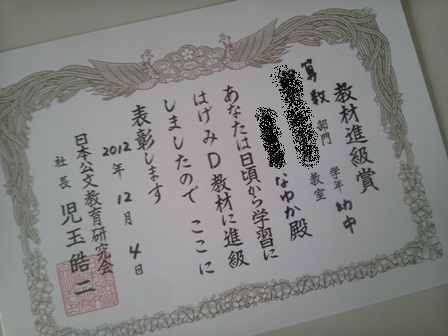 教材進級賞
算数 部門 学年 幼中
教室
なゆか殿
あなたは日頃から学習に
はげみD教材に進級
しましたので ここに
表彰します
2012年 12月 4日
日本公文教育研究会
社長 児玉皓二